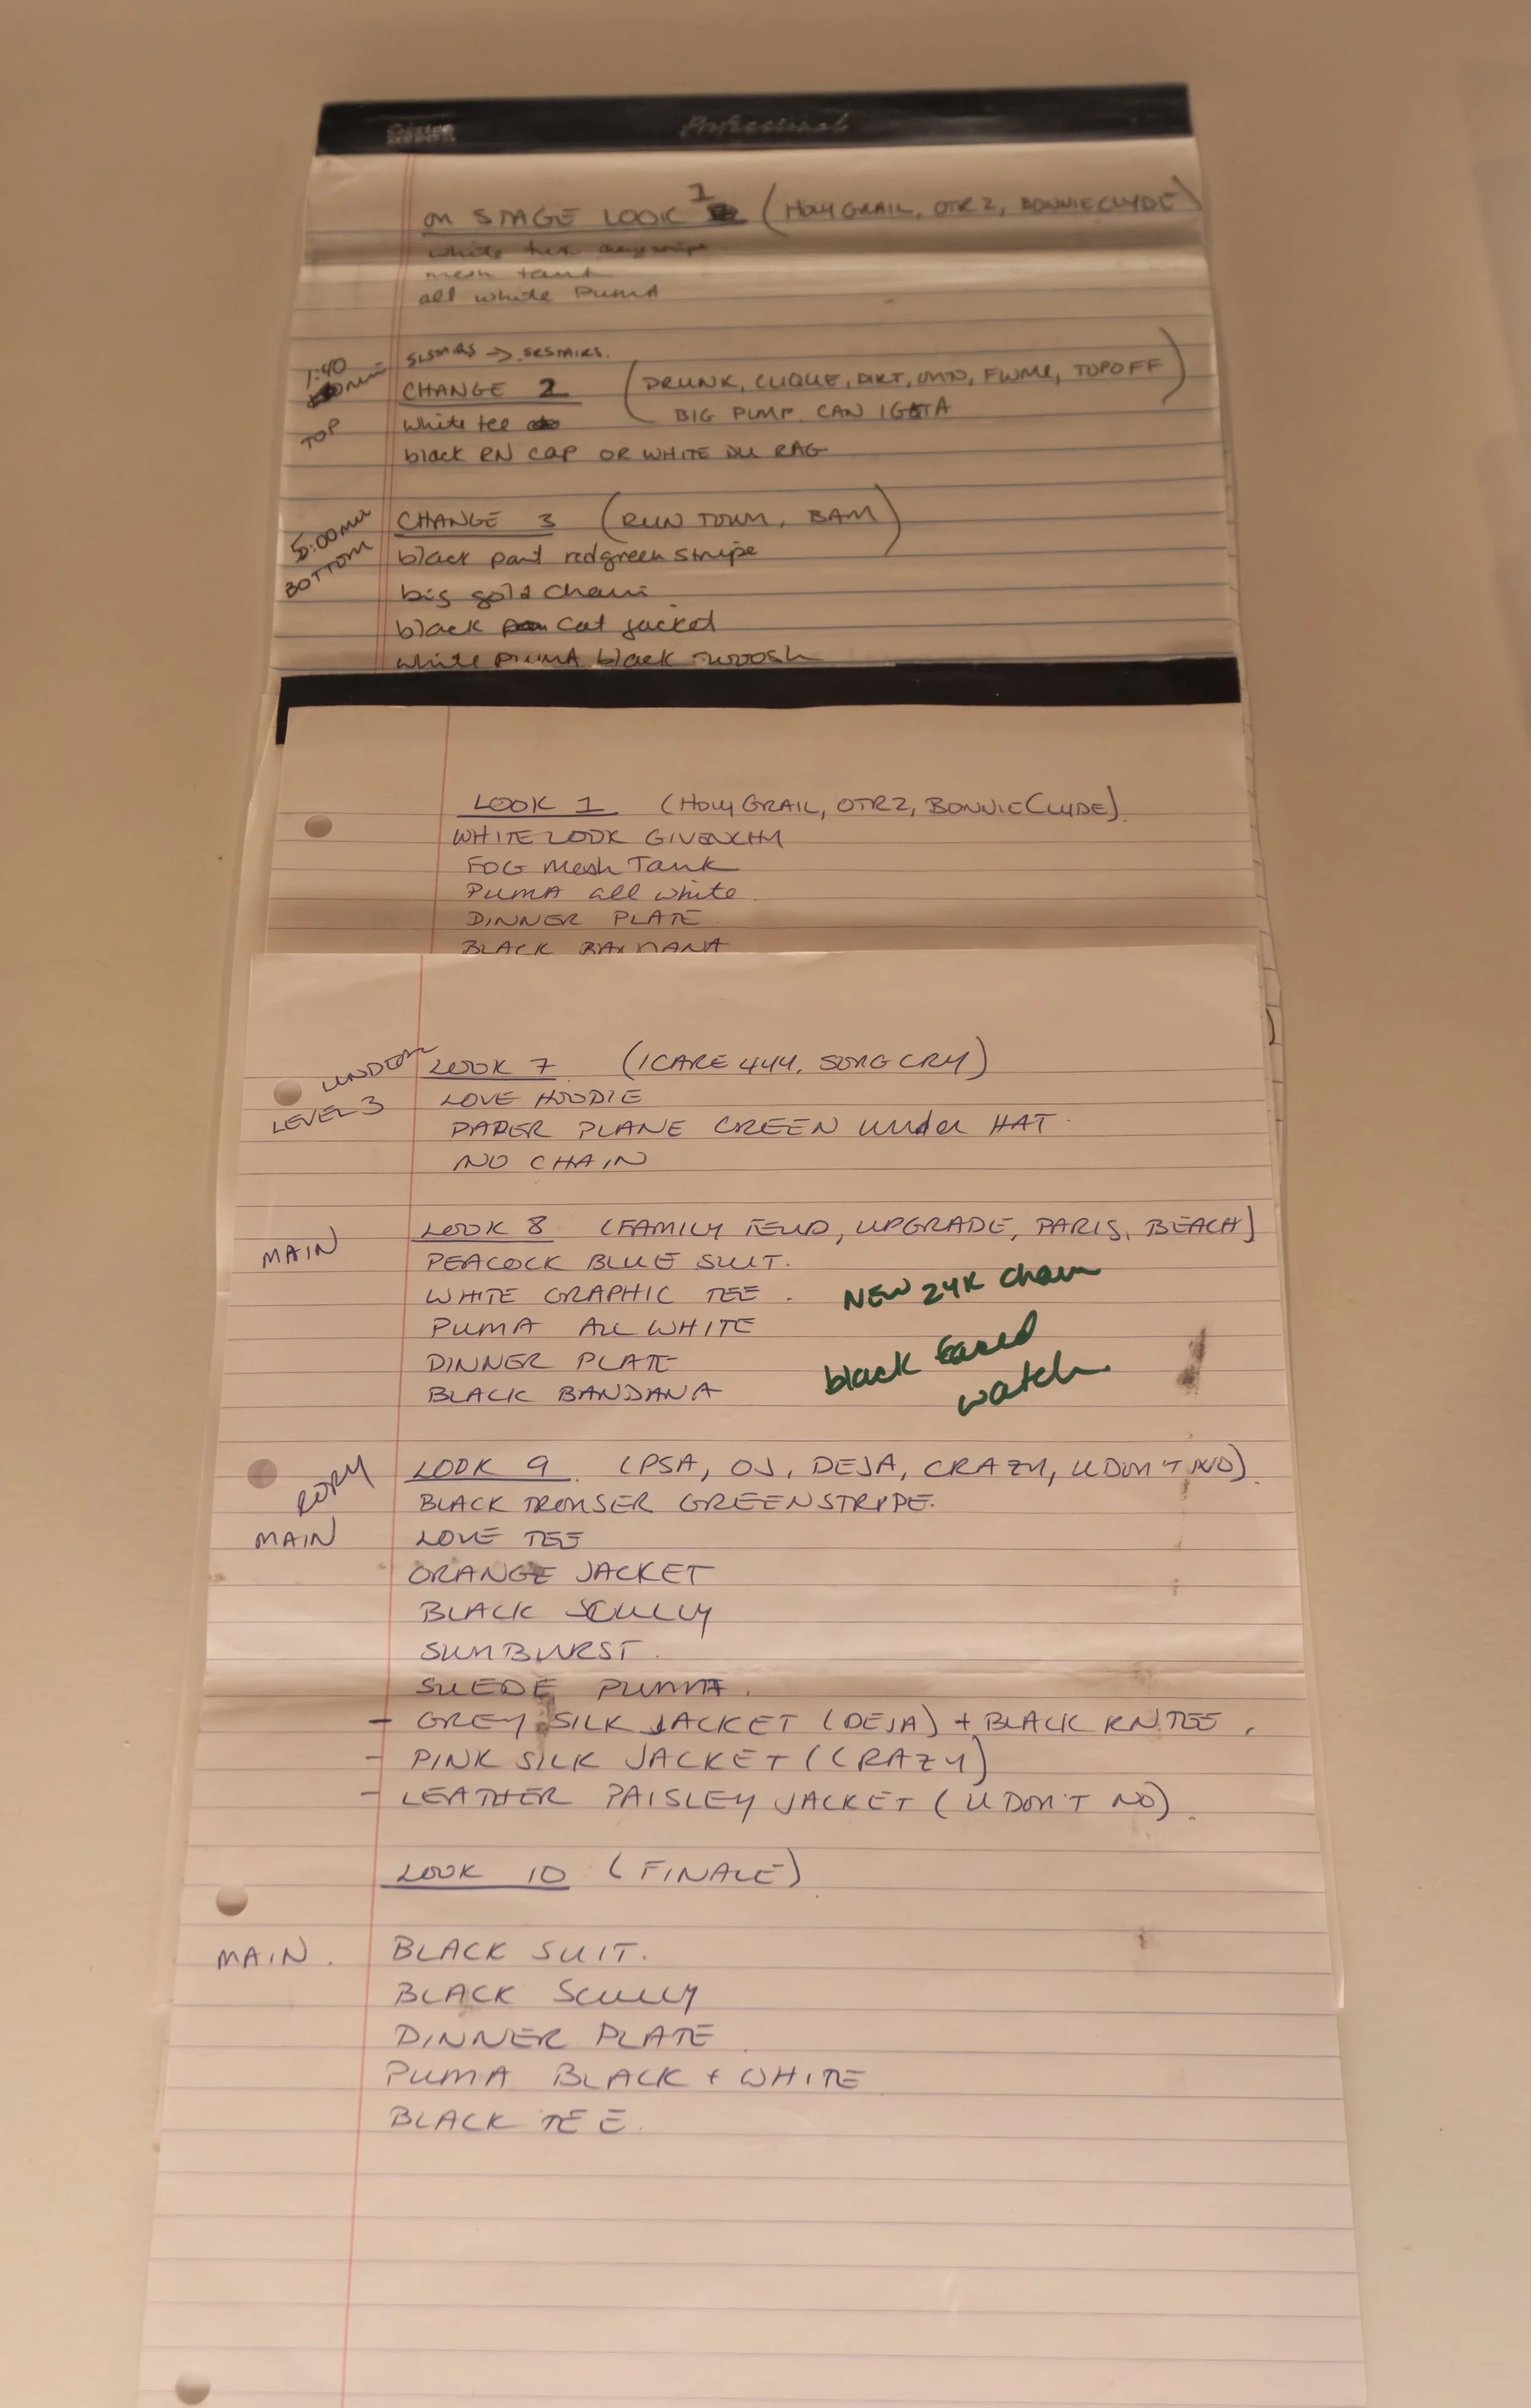 Professional
ON STAGE LOOK 1 (HOLY GRAIL, OTR 2, BONNIE CLYDE)
white tux
mesh tank
all white PUMA
SLSTAIRS → SRSTAIRS.
1:40
CHANGE 2 (DRUNK, CLIQUE, DIRT, OMN, FWML, TOPOFF
BIG PUMP, CAN I GETTA)
TOP white tee
black RN cap OR WHITE DU RAG
5:00MIN CHANGE 3 (RUN TOWN, BAM)
BOTTOM black pant red green stripe
big gold chain
black cat jacket
white PUMA black swoosh
LOOK 1 (HOLY GRAIL, OTR2, BONNIE CLYDE)
WHITE LOOK GIVENCHY
FOG Mesh Tank
PUMA all white
DINNER PLATE
BLACK BANDANA
UNDER LOOK 7 (ICARE 444, SONG CRY)
LEVEL 3 LOVE HOODIE
PAPER PLANE GREEN under HAT
NO CHAIN
MAIN LOOK 8 (FAMILY FEUD, UPGRADE, PARIS, BEACH)
PEACOCK BLUE SUIT.
WHITE GRAPHIC TEE. NEW 24K chain
PUMA ALL WHITE
DINNER PLATE black faced
BLACK BANDANA watch
RORY LOOK 9 (PSA, OJ, DEJA, CRAZY, U DON'T NO)
BLACK TROUSER GREEN STRIPE.
MAIN LOVE TEE
ORANGE JACKET
BLACK SCULLY
SUNBURST.
SUEDE PUMA.
- GREY SILK JACKET (DEJA) + BLACK RN TEE,
- PINK SILK JACKET (CRAZY)
- LEATHER PAISLEY JACKET (U DON'T NO).
LOOK 10 (FINALE)
MAIN. BLACK SUIT.
BLACK SCULLY
DINNER PLATE
PUMA BLACK + WHITE
BLACK TEE.